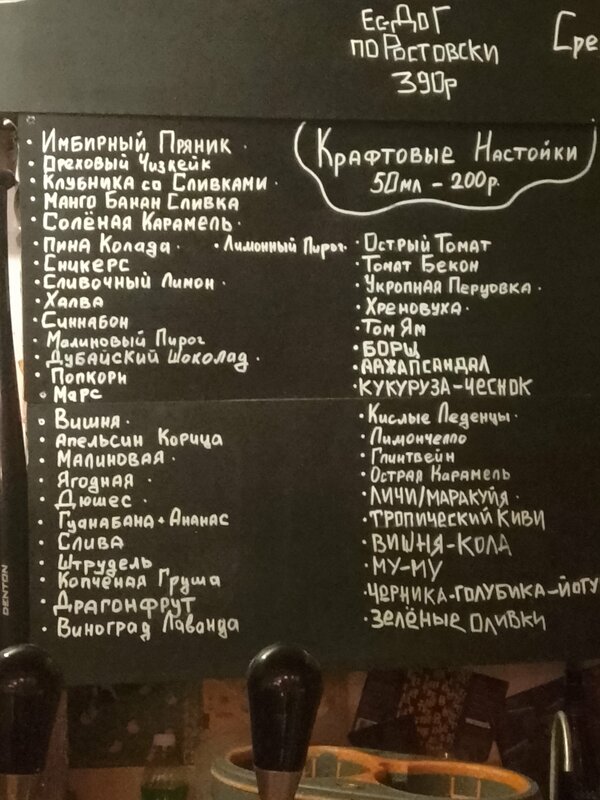 Ес-Дог
по Ростовски
390р
Сре
Крафтовые Настойки
50мл - 200р.
· Имбирный Пряник ·
· Ореховый Чизкейк
· Клубника со Сливками ·
· Манго Банан Сливка
· Солёная Карамель ·
· Пина Колада · · Лимонный Пирог ·
· Сникерс
· Сливочный Лимон ·
· Халва
· Синнабон
· Малиновый Пирог
· Дубайский Шоколад ·
· Попкорн
· Марс
· Вишня ·
· Апельсин Корица
· Малиновая ·
· Ягодная ·
· Дюшес ·
· Гуанабана + Ананас
· Слива
· Штрудель
· Копчёная Груша
· Драгонфрут
· Виноград Лаванда
· Острый Томат
Томат Бекон
· Укропная Перцовка ·
· Хреновуха ·
· Том Ям
· БОРЩ
· ААЖАПСАНДАЛ
· КУКУРУЗА-ЧЕСНОК
· Кислые Леденцы ·
· Лимончелло
· Глинтвейн
· Острая Карамель
· ЛИЧИ/МАРАКУЙЯ ·
· ТРОПИЧЕСКИЙ КИВИ
· ВИШНЯ-КОЛА
· МУ-МУ
· ЧЕРНИКА-ГОЛУБИКА-ЙОГУ
· ЗЕЛЁНЫЕ ОЛИВКИ
DENTON